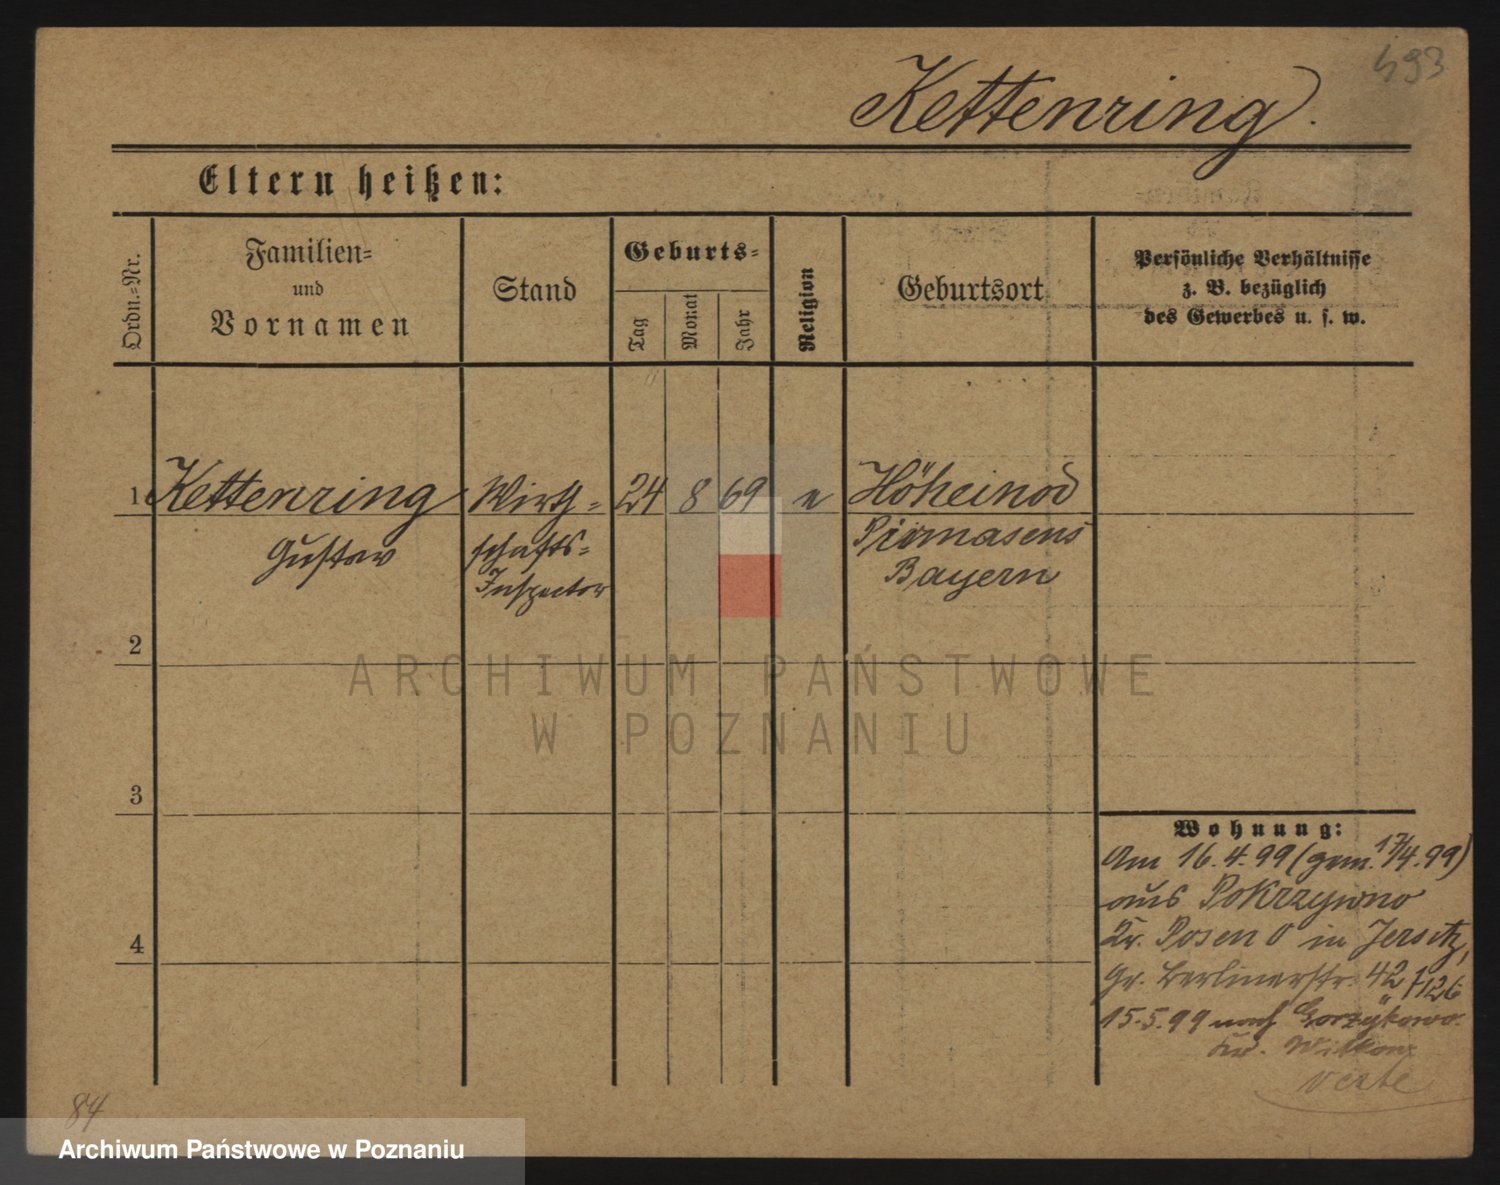 493
Kettenring.
Eltern heißen:
Ordn.-Nr.
Familien-
und
Vornamen
Stand
Geburts-
Tag
Monat
Jahr
Religion
Geburtsort
Persönliche Verhältnisse
z. B. bezüglich
des Gewerbes u. s. w.
1 Kettenring Wirth- 24 8 69 e Höheinod
Gustav schafts- Pirmasens
Inspector Bayern
2
3
4
Wohnung:
Am 16.4.99 (gem. 17/4.99)
aus Pokrzywno
Kr. Posen O in Jersitz,
Gr. Berlinerstr. 42
15.5.99 nach Gorzykowo
Kr. Witkow
verte
84
ARCHIWUM PAŃSTWOWE
W POZNANIU
Archiwum Państwowe w Poznaniu